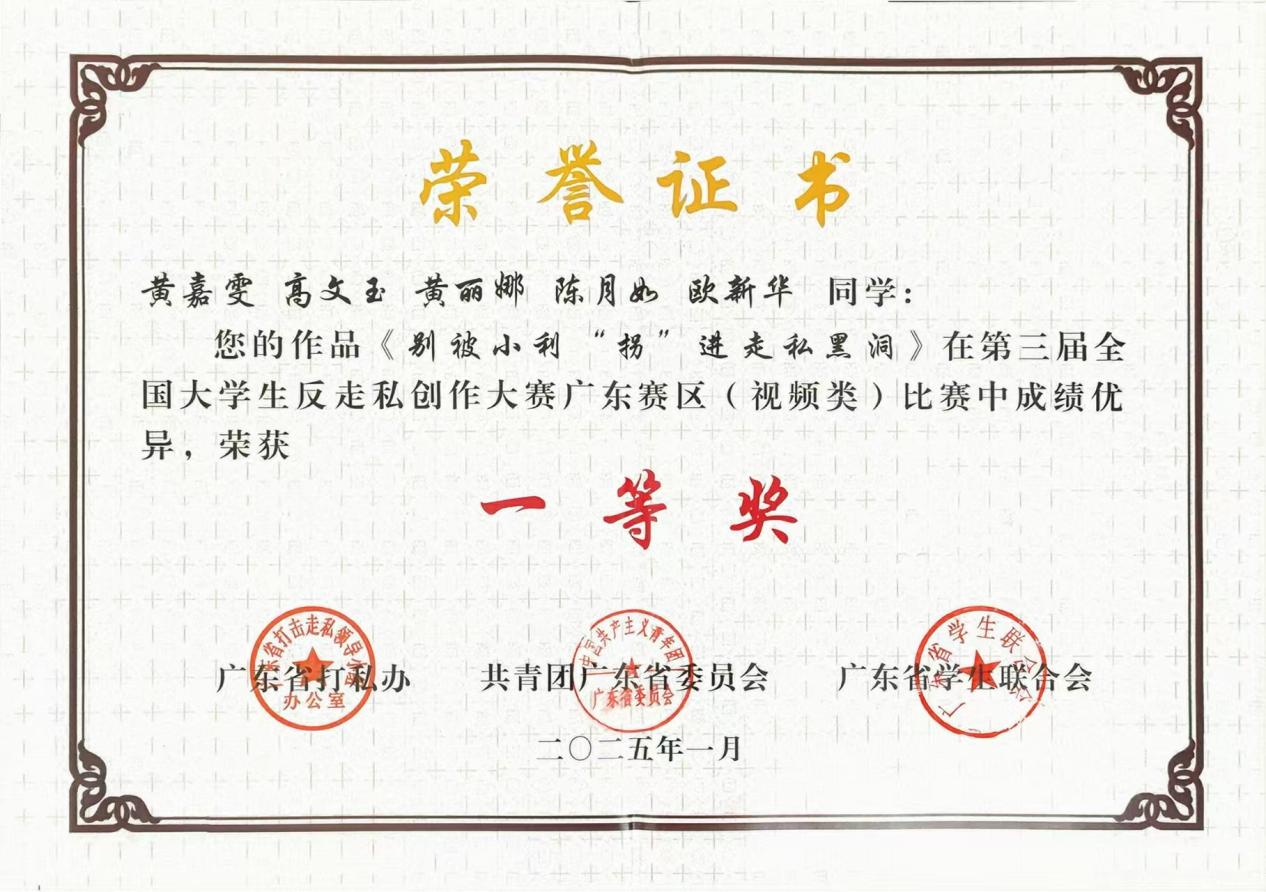 荣誉证书
黄嘉雯 高文玉 黄丽娜 陈月如 欧新华 同学：
您的作品《别被小利“拐”进走私黑洞》在第三届全
国大学生反走私创作大赛广东赛区（视频类）比赛中成绩优
异，荣获
一等奖
广东省打私办 共青团广东省委员会 广东省学生联合会
办公室
广东省委员会
广东省学生联合会
二〇二五年一月